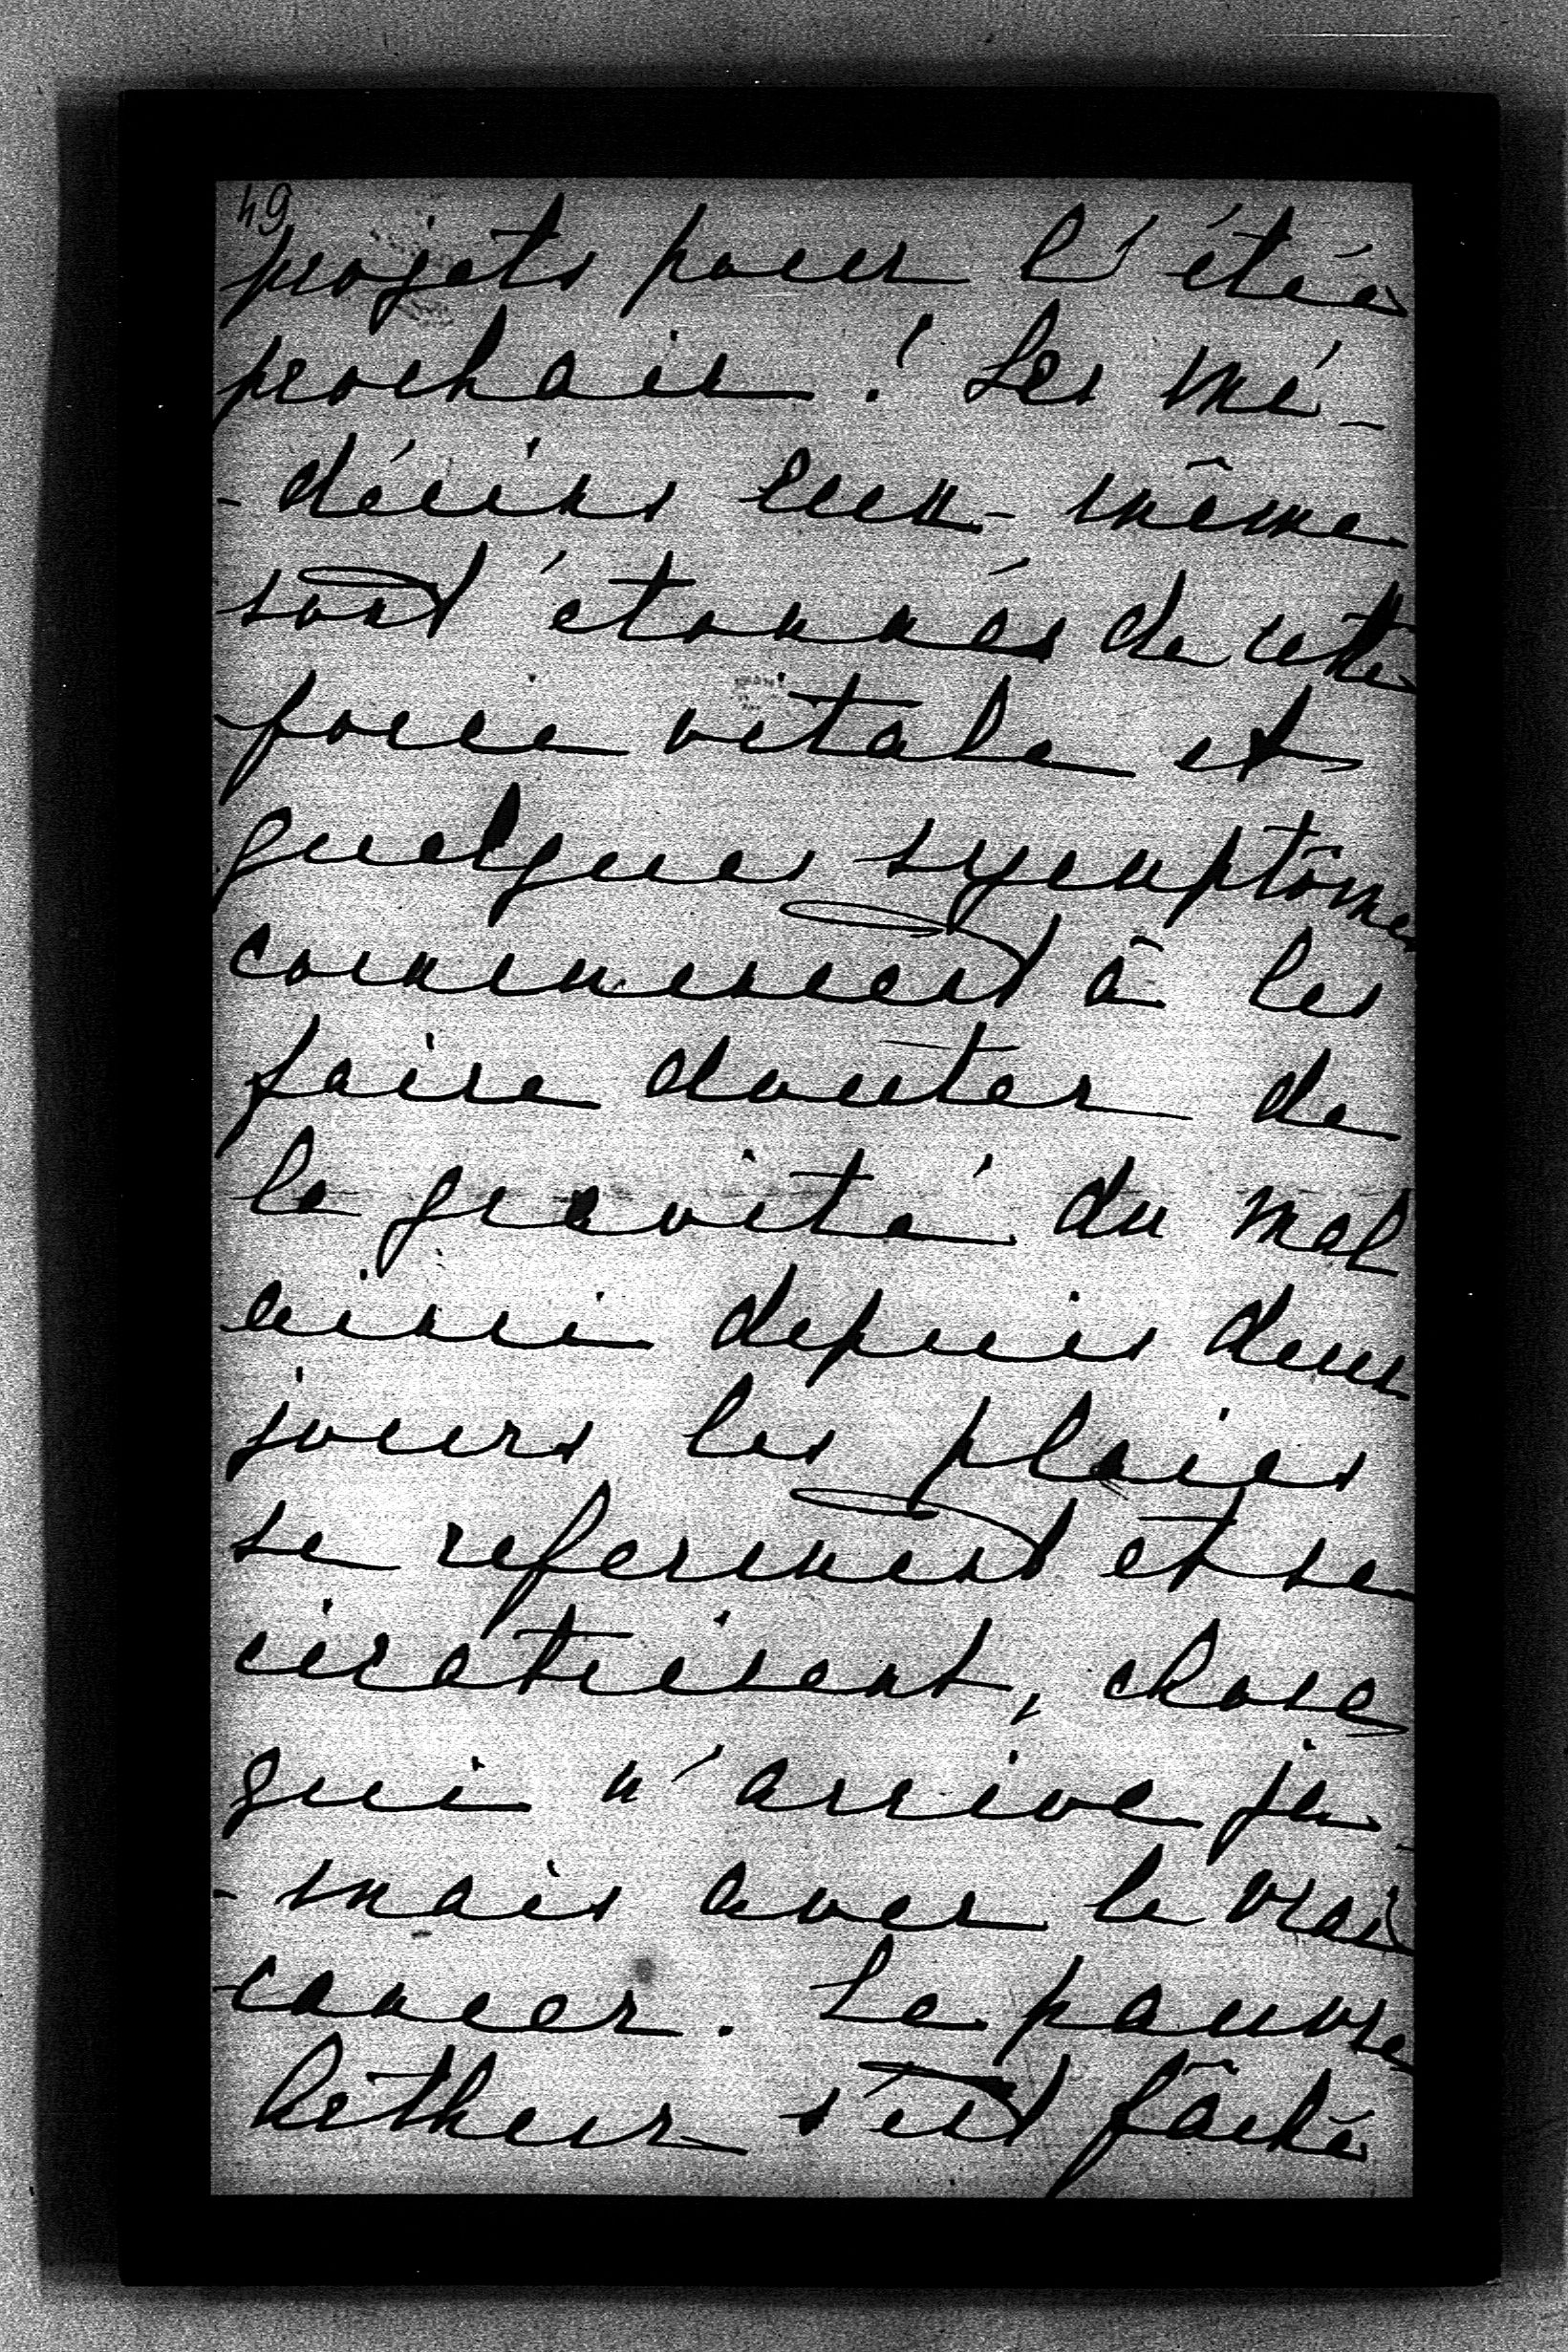 49
projets pour l'étée
prochain ! Les mé-
-décins eux-même
sont étonnés de cette
force vitale et
quelques symptômes
commencent à les
faire douter de
la gravité du mal
ainsi depuis deux
jours les plaies
se referment et se
cicatrisent, chose
qui n'arrive ja-
-mais avec le vrai
cancer. Le pauvre
s'est fâché